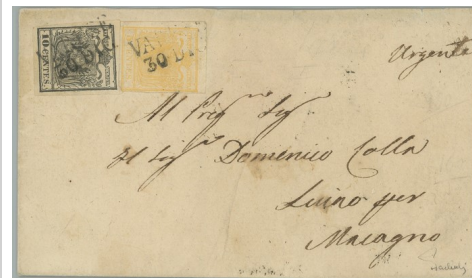 10 CENTES.
30 DIC
VA
30 DIC
Urgente
Al Preg Sig
Il Sig Domenico Colla
Luino per
Macagno